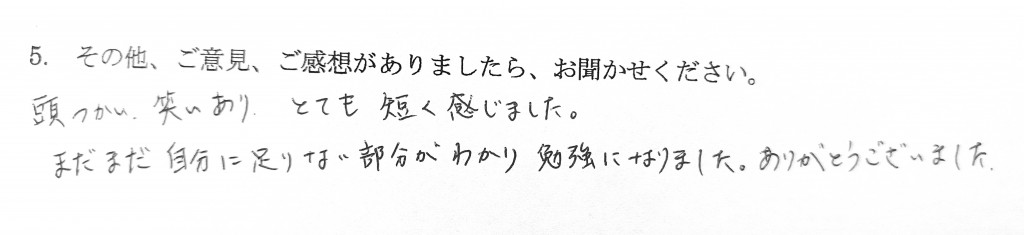 5. その他、ご意見、ご感想がありましたら、お聞かせください。
頭つかい、笑いあり、とても短く感じました。
まだまだ自分に足りない部分がわかり勉強になりました。ありがとうございました。